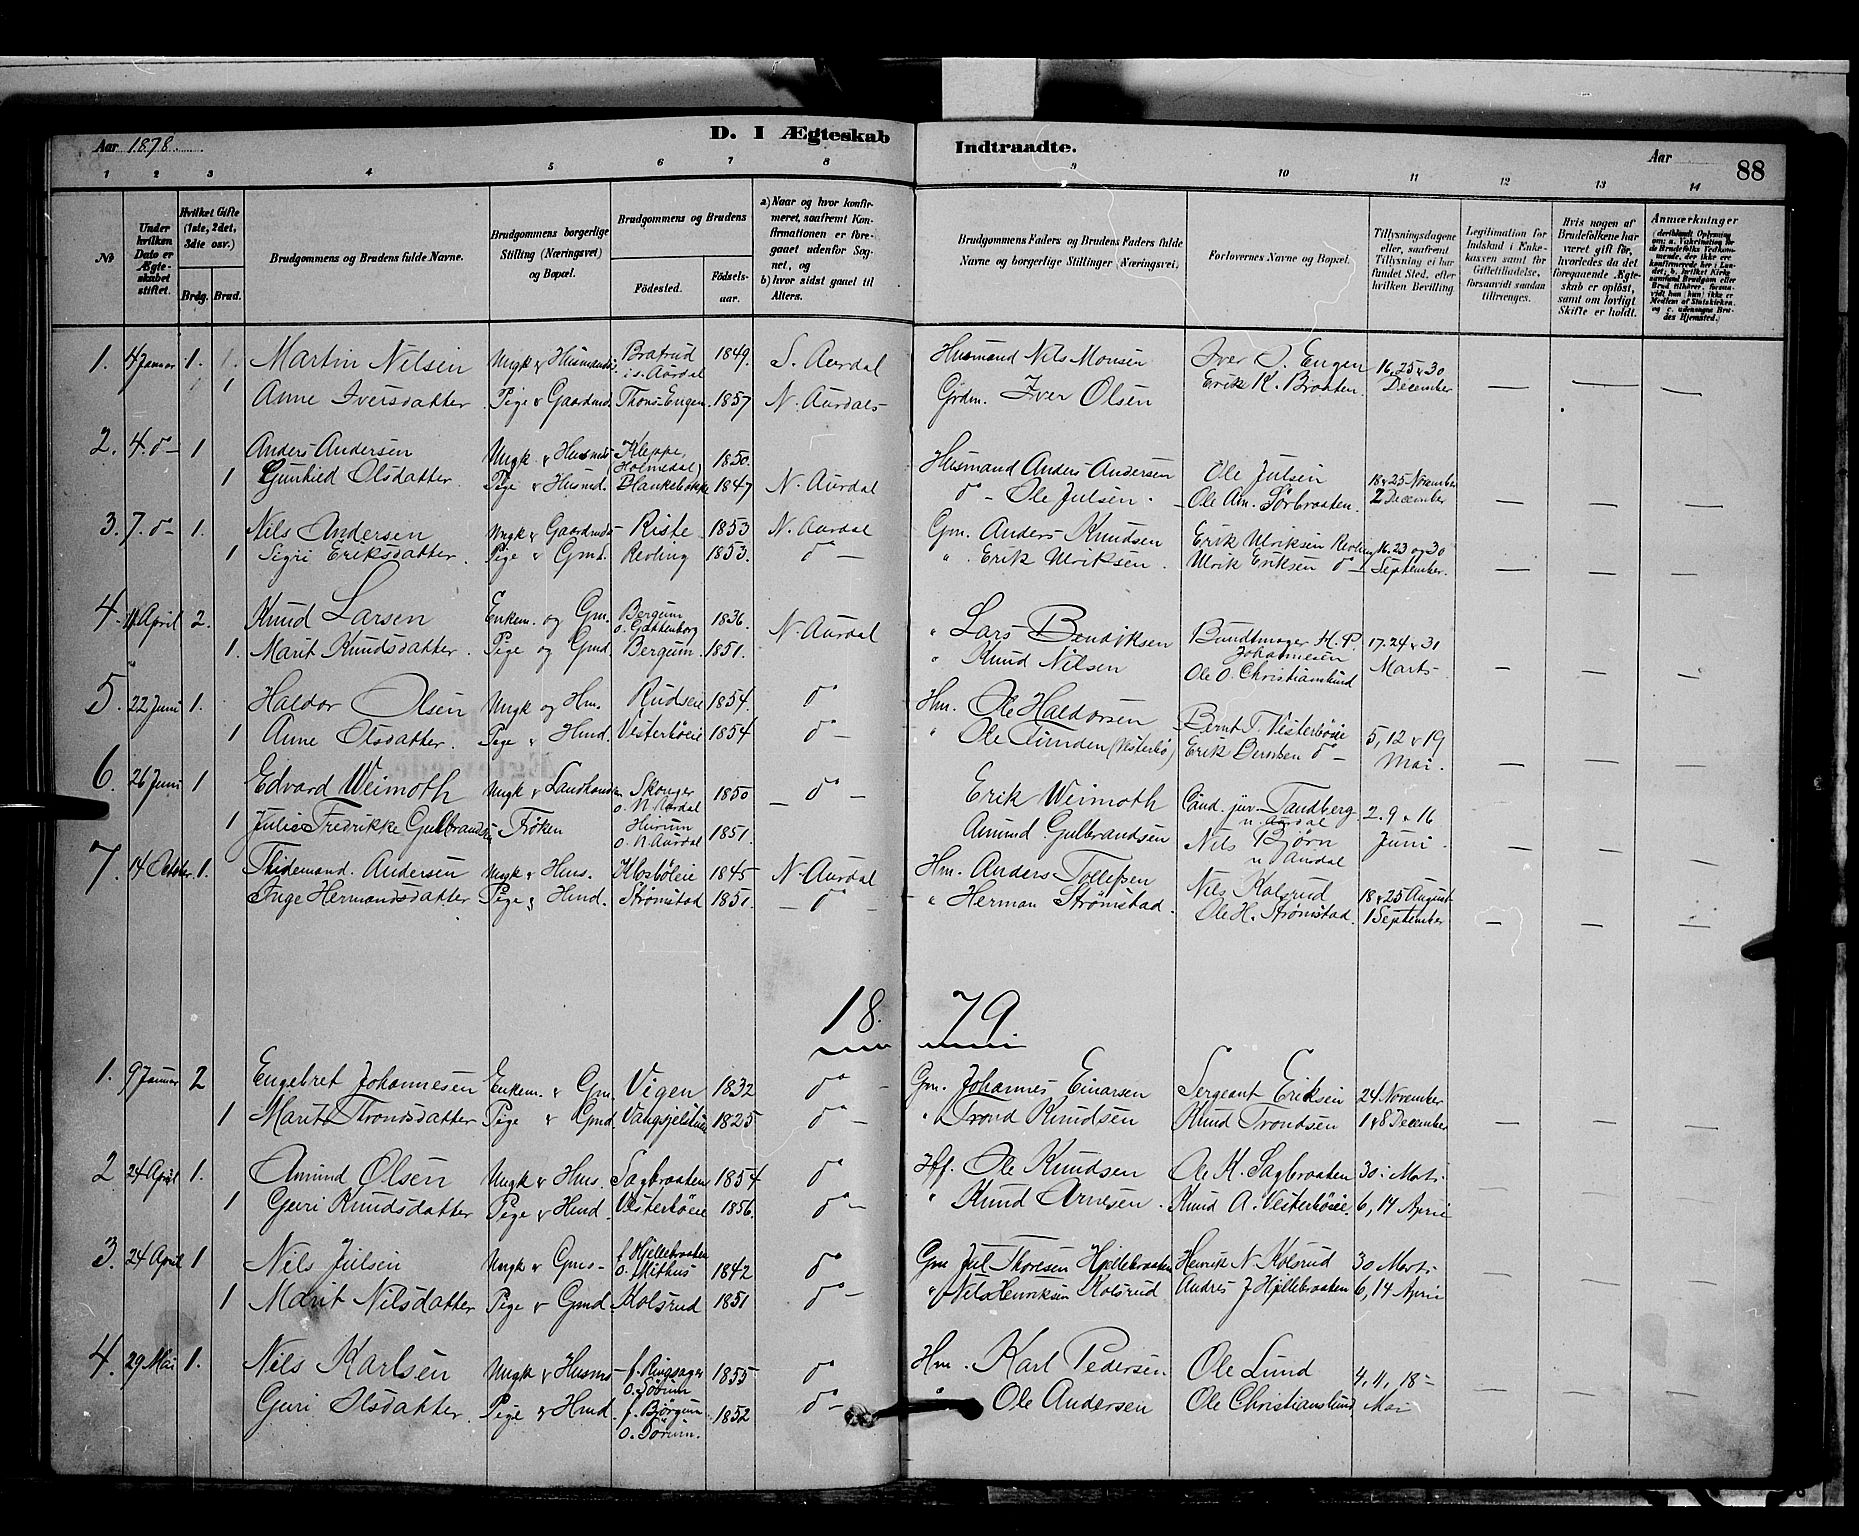 Aar 1878.
D. I Ægteskab Indtraadte.
Aar
88
1 2 3 4 5 6 7 8 9 10 11 12 13 14
№
Under hvilken Dato er Ægteskabet stiftet.
Hvilket Gifte (1ste, 2det, 3die osv.)
Brdg. Brud.
Brudgommens og Brudens fulde Navne.
Brudgommens borgerlige Stilling (Næringsvei) og Bopæl.
Brudgommens og Brudens
Födested.
Födselsaar.
a) Naar og hvor konfirmeret, saafremt Konfirmationen er foregaaet udenfor Sognet, og
b) hvor sidst gaaet til Alters.
Brudgommens Faders og Brudens Faders fulde Navne og borgerlige Stillinger (Næringsvei).
Forlovernes Navne og Bopæl.
Tillysningsdagene eller, saafremt Tillysning ei har fundet Sted, efter hvilken Bevilling.
Legitimation for Indskud i Enkekassen samt for Giftetilladelse, forsaavidt saadan tiltrænges.
Hvis nogen af Brudefolkene har været gift för, hvorledes da det foregaaende Ægteskab er oplöst, samt om lovligt Skifte er holdt.
Anmærkninger
1. 4 Januar 1. Martin Nilsen Ungk & Husmands. Bratrud i S. Aurdal 1849. S. Aurdal Husmand Nils Monsen Iver O. Engen 16, 25 & 30
1 Anne Iversdatter Pige & Gaardmd. Thons-Engen 1857 N. Aurdals Grdm. Iver Olsen Erik K. Braaten. December
2. 4. d° 1 Anders Andersen Ungk & Husmds Kleppe, (Holmedal) 1850. Husmand Anders Andersen Ole Julsen 18 & 25 November
1 Gunhild Olsdatter. Pige & Husmd. 1847 N. Aurdal d° - Ole Julsen. Ole Am. Sørbraaten. 2 December
3. 7. d° 1. Nils Andersen Ungk & Gaardmds Riste 1853 N. Aurdal Gm. Anders Knudsen Erik Ulriksen Revling 16. 23 og 30
1 Sigri Eriksdatter. Pige & Gmd. Revling 1853. d° " Erik Ulriksen. Ulrik Eriksen d° September.
4. 11 April 2. Knud Larsen Enkem. og Gm. Bergum o. Gottenborg 1836. N. Aurdal " Lars Bendiksen Bundtmager H. P. Johannesen 17. 24 & 31
1. Marit Knudsdatter. Pige og Gmd. Bergum. 1851. " Knud Nilsen Ole O. Christianslund Marts
5. 22 Juni 1. Haldor Olsen Ungk og Hm. Rudseie 1854. d° Hm. Ole Haldorsen Bernt T. Vesterbøie 5, 12 & 19
1 Anne Olsdatter. Pige & Hmd. Vesterbøeie 1854 d° " Ole Tunden (Vesterbø) Erik Berntsen d° Mai.
6. 26 Juni 1 Edvard Weimoth Ungk & Landhandl. Skonger o. N. Aurdal 1850 d° Erik Weimoth Cand. jur. Tandberg n. Aurdal 2. 9 & 16
1 Julie Fredrikke Gulbrandsen Frøken Hurum o. N. Aurdal 1851. Amund Gulbrandsen Nils Bjørn n. Aurdal Juni.
7. 14 October 1. Thidemand. Andersen Ungk & Hms. Klosbøleie 1845 N. Aurdal Hm. Anders Tollefsen Nils Kolsrud 18 & 25 August
Inge Hermandsdatter Pige & Hmd. Strømstad 1851. d° " Herman Strømstad. Ole H. Strømstad. 1 September
18 79.
1. 9 Januar 2 Engebret Johannesen Enkem. & Gm. Vigen 1832 d° Gm. Johannes Einarsen Sergeant Eriksen 24 November
1 Marit Throndsdatter Pige & Gmd. 1825 d° " Trond Knudsen Knud Trondsen 1 & 8 December
2 24 April 1. Amund Olsen Ungk & Hms. Sagbraaten 1854 d° Hff. Ole Knudsen Ole K. Sagbraaten 30 Mart.
1 Guri Knudsdatter Pige & Hmd. Vesterbøeie 1856. d° " Knud Arnesen. Knud A. Vesterbøie. 6, 14 April
3. 24 April 1 Nils Julsen Ungk & Gms- f. Hjellebraaten o. Mithus 1842 d° Gm Jul Thoresen Hjellebraaten Henrik N. Kolsrud 30 Mart.
1 Marit Nilsdatter Pige & Gmd. Kolsrud 1851 d° " Nils Henriksen Kolsrud Andres J Hjellebraaten 6, 14 April
4. 29 Mai 1. Nils Karlsen Ungk & Husms f. Ringsager o. Sörum 1855 d° Hm. Karl Pedersen Ole Lund 4, 11, 18
Guri Olsdatter. Pige & Hmd. f. Bjørgum o. Sörum. 1852 d° " Ole Andersen Ole Christianslund, Mai